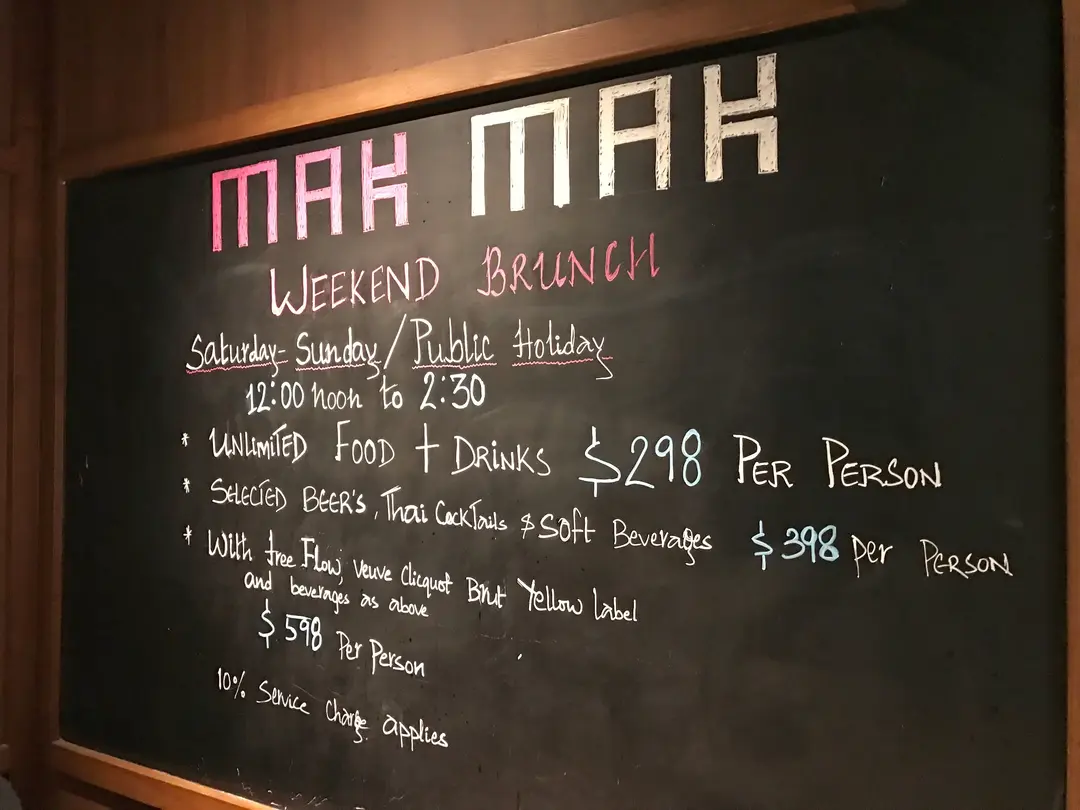 MAK MAK
WEEKEND BRUNCH
Saturday- Sunday/Public Holiday
12:00 noon to 2:30
* UNLIMITED FOOD + DRINKS $298 PER PERSON
* SELECTED BEER'S, Thai Cocktails & Soft Beverages $398 per PERSON
* With free Flow, veuve Clicquot Brut Yellow label
and beverages as above
$598 Per Person
10% Service Charge applies